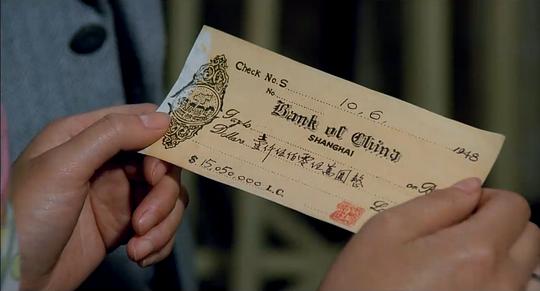 Check No. S
No. 10. 6. 1948
Bank of China
SHANGHAI
Dollars 壹仟伍佰零伍萬圓整
on
$ 15,050,000 L.C.